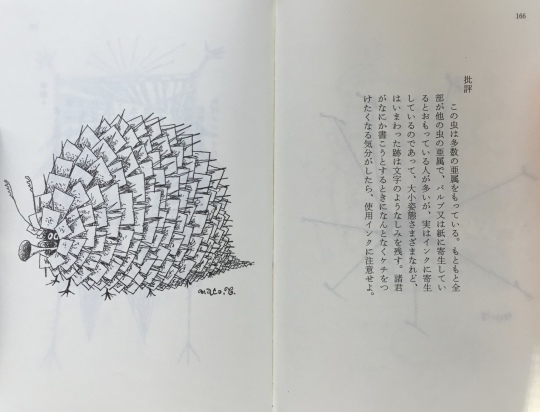 166
批評
この虫は多数の亜属をもっている。もともと全
部が他の虫の亜属で、パルプ又は紙に寄生してい
るとおもっている人が多いが、実はインクに寄生
しているのであって、大小姿態さまざまなれど、
はいまわった跡は文字のようなしみを残す。諸君
がなにか書こうとするときになんとなくケチをつ
けたくなる気分がしたら、使用インクに注意せよ。